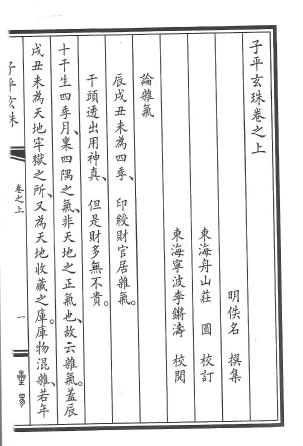 子平玄珠卷之上
明佚名　撰集
東海舟山莊　圓　校訂
東海寧波李鏘濤　校閱
論雜氣
辰戌丑未為四季、印綬財官居雜氣。
干頭透出用神真、但是財多無不貴。
十干生四季月、稟四隅之氣、非天地之正氣也、故云雜氣。蓋辰
戌丑未為天地牢獄之所、又為天地收藏之庫。庫物混雜、若年
子平玄珠
卷之上
一